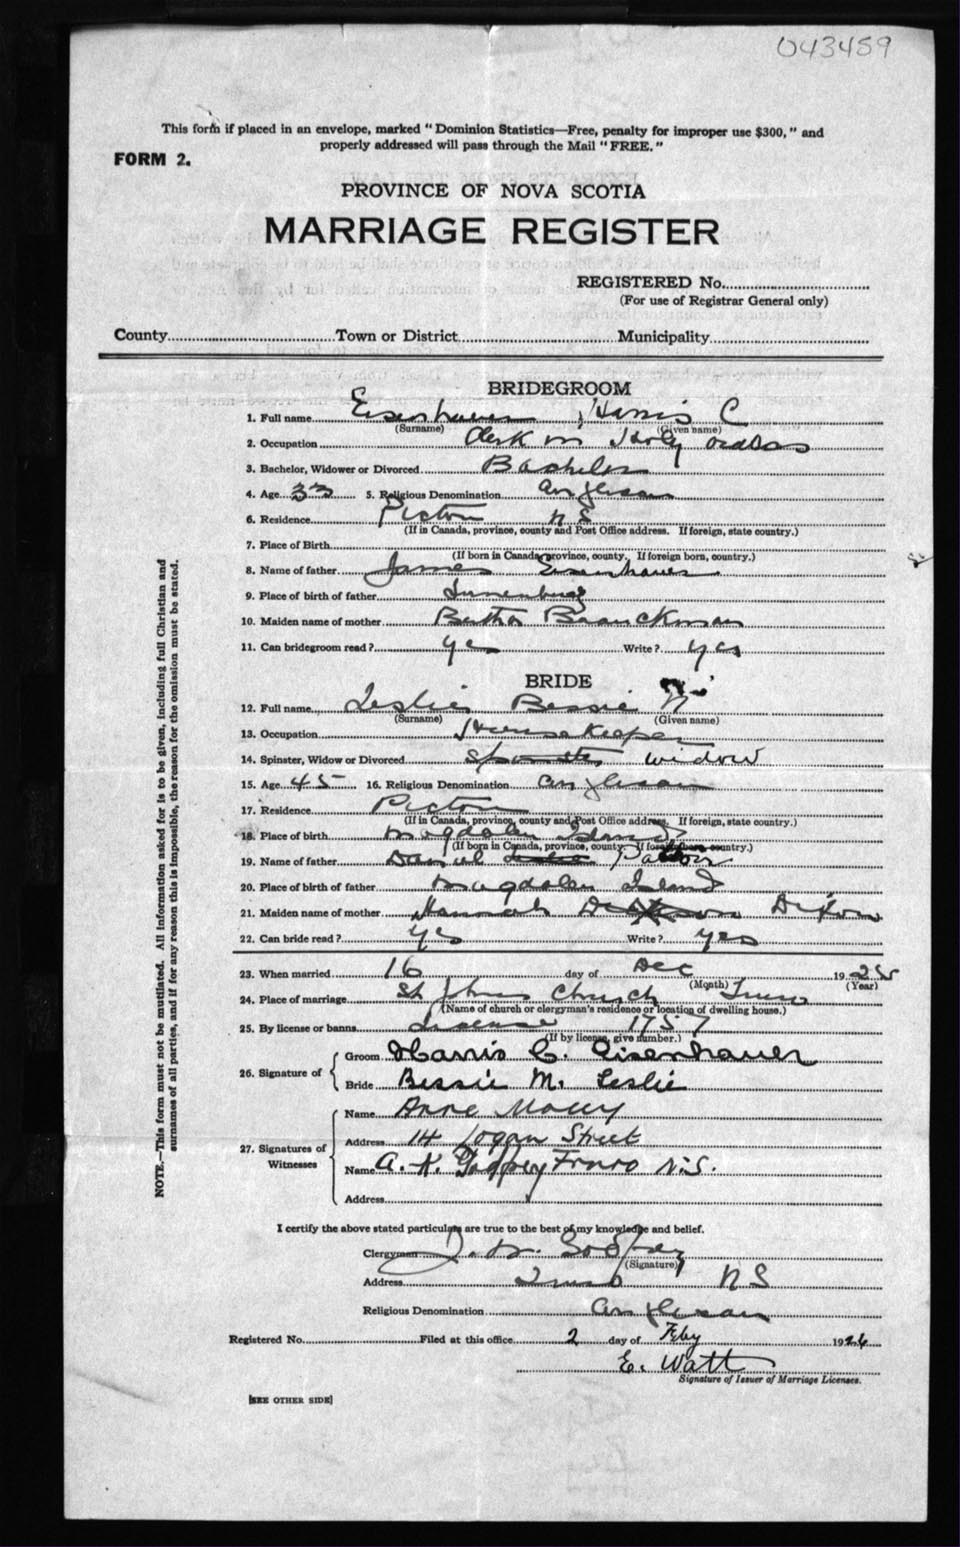 043459
This form if placed in an envelope, marked "Dominion Statistics—Free, penalty for improper use $300," and
properly addressed will pass through the Mail "FREE."
FORM 2.
PROVINCE OF NOVA SCOTIA
MARRIAGE REGISTER
REGISTERED No.
(For use of Registrar General only)
County Town or District Municipality
BRIDEGROOM
1. Full name Eisenhauer, Harris C
(Surname) (Given name)
2. Occupation Clerk in Holy orders
3. Bachelor, Widower or Divorced Bachelor
4. Age 33 5. Religious Denomination Anglican
6. Residence Pictou N S
(If in Canada, province, county and Post Office address. If foreign, state country.)
7. Place of Birth
(If born in Canada, province, county. If foreign born, country.)
8. Name of father James Eisenhauer
9. Place of birth of father Lunenburg
10. Maiden name of mother Bertha
11. Can bridegroom read? yes Write? yes
BRIDE
12. Full name Leslie Bessie
(Surname) (Given name)
13. Occupation Housekeeper
14. Spinster, Widow or Divorced Widow
15. Age 45 16. Religious Denomination Anglican
17. Residence Pictou
(If in Canada, province, county and Post Office address. If foreign, state country.)
18. Place of birth Magdalen Islands
(If born in Canada, province, county. If foreign born country.)
19. Name of father Daniel
20. Place of birth of father Magdalen Island
21. Maiden name of mother Hannah Dixon
22. Can bride read? yes Write? yes
23. When married 16 day of Dec 1925
(Month) (Year)
24. Place of marriage St Johns Church Truro
(Name of church or clergyman's residence or location of dwelling house.)
25. By license or banns License 1757
(If by license, give number.)
26. Signature of
Groom Harris C. Eisenhauer
Bride Bessie M. Leslie
27. Signatures of
Witnesses
Name Anne
Address 14 Logan Street
Name A. K. Godfrey Truro N.S.
Address
I certify the above stated particulars are true to the best of my knowledge and belief.
Clergyman Godfrey
(Signature)
Address Truro N S
Religious Denomination Anglican
Registered No. Filed at this office 2 day of Feby 1926
E. Watt
Signature of Issuer of Marriage Licenses.
[SEE OTHER SIDE]
NOTE.—This form must not be mutilated. All information asked for is to be given, including full Christian and
surnames of all parties, and if for any reason this is impossible, the reason for the omission must be stated.